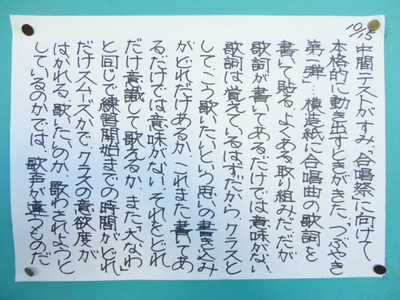 10/15
中間テストがすみ、合唱祭に向けて
本格的に動き出すときがきた。つぶやき
第一弾…模造紙に合唱曲の歌詞を
書いて貼る。よくある取り組みだ。だが
歌詞が書いてあるだけでは意味がない。
歌詞は覚えているはずだから、クラスと
してこう歌いたいという思いの書き込み
がどれだけあるか。これまた書いてあ
るだけでは意味がない。それをどれ
だけ意識して歌えるか。また「大なわ」
と同じで練習開始までの時間がどれ
だけスムーズかで、クラスの意欲度が
はかれる。歌いたいのか、歌わされようと
しているのかでは、歌声が違うものだ